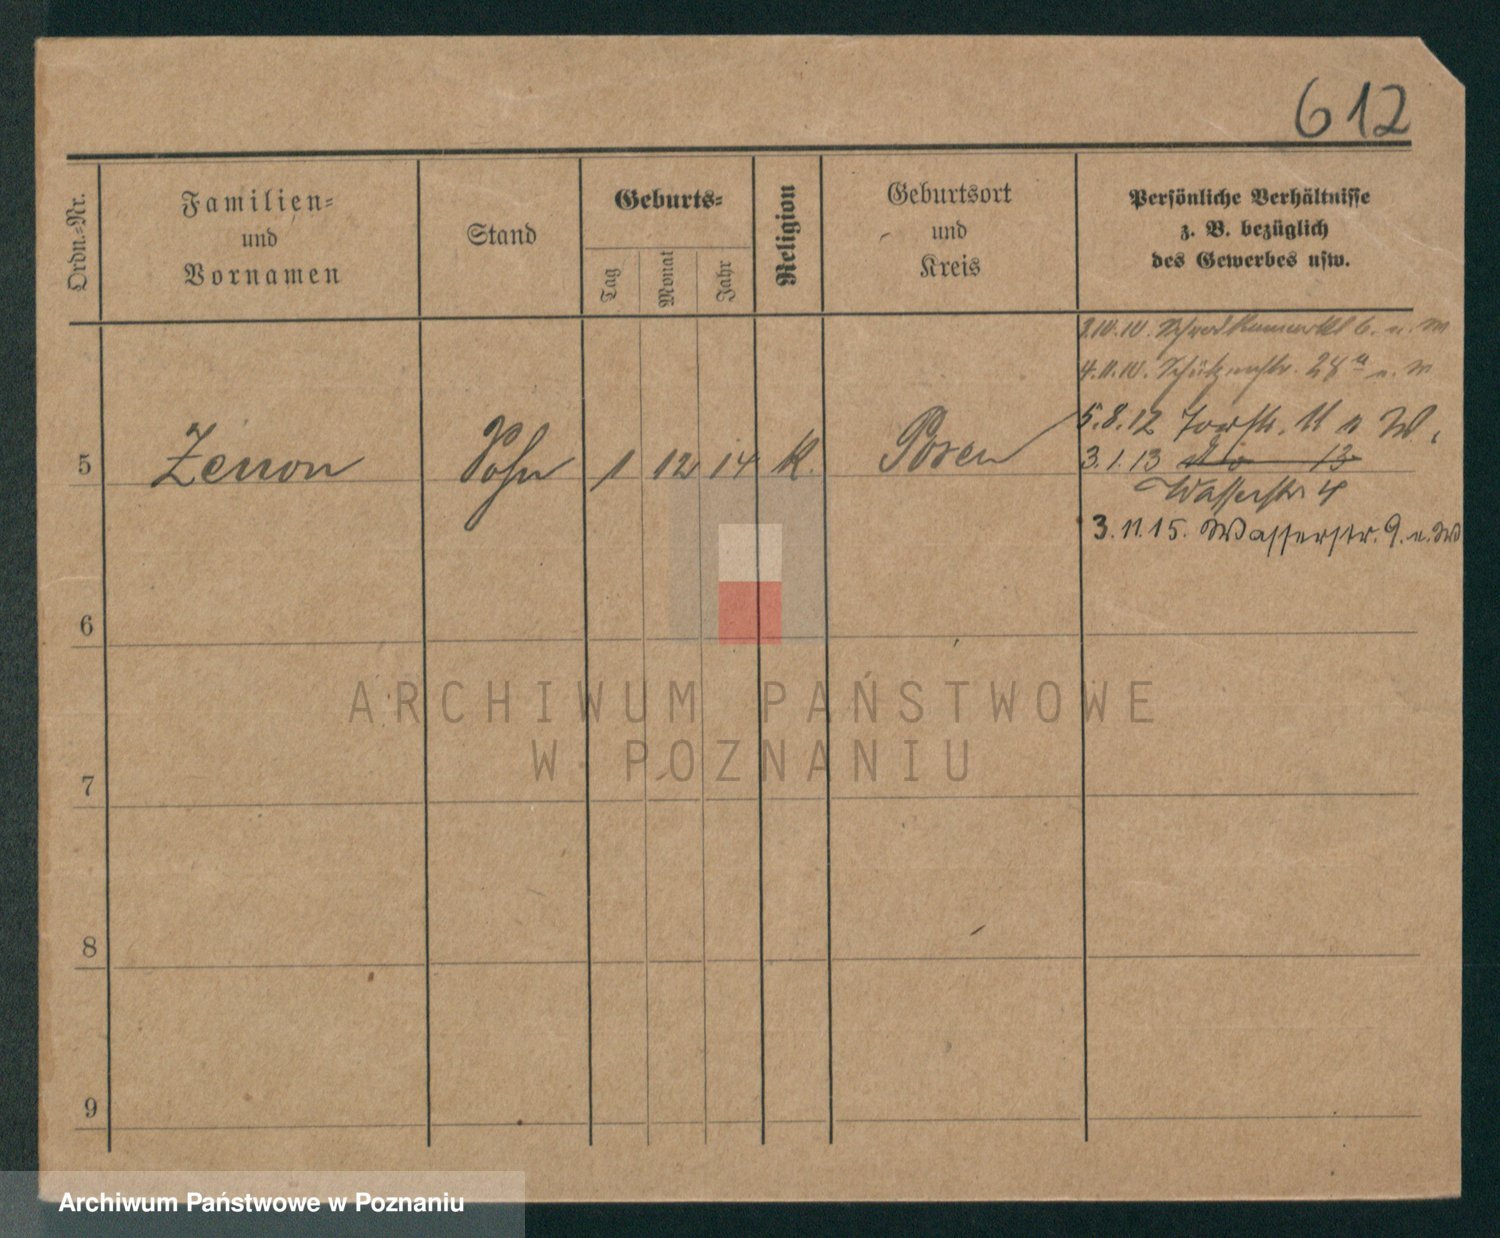 612
Ordn.=Nr.
Familien=
und
Vornamen
Stand
Geburts=
Tag
Monat
Jahr
Religion
Geburtsort
und
Kreis
Persönliche Verhältnisse
z. B. bezüglich
des Gewerbes usw.
4.11.10. Schützenstr. 28a u. W
5.8.12 Torstr. 11 u W.
5 Zenon Sohn 1 12 14 K. Posen 3.1.13 do 13
Wasserstr 4
3.11.15. Wasserstr. 9. u. W
6
ARCHIWUM PAŃSTWOWE
W POZNANIU
7
8
9
Archiwum Państwowe w Poznaniu